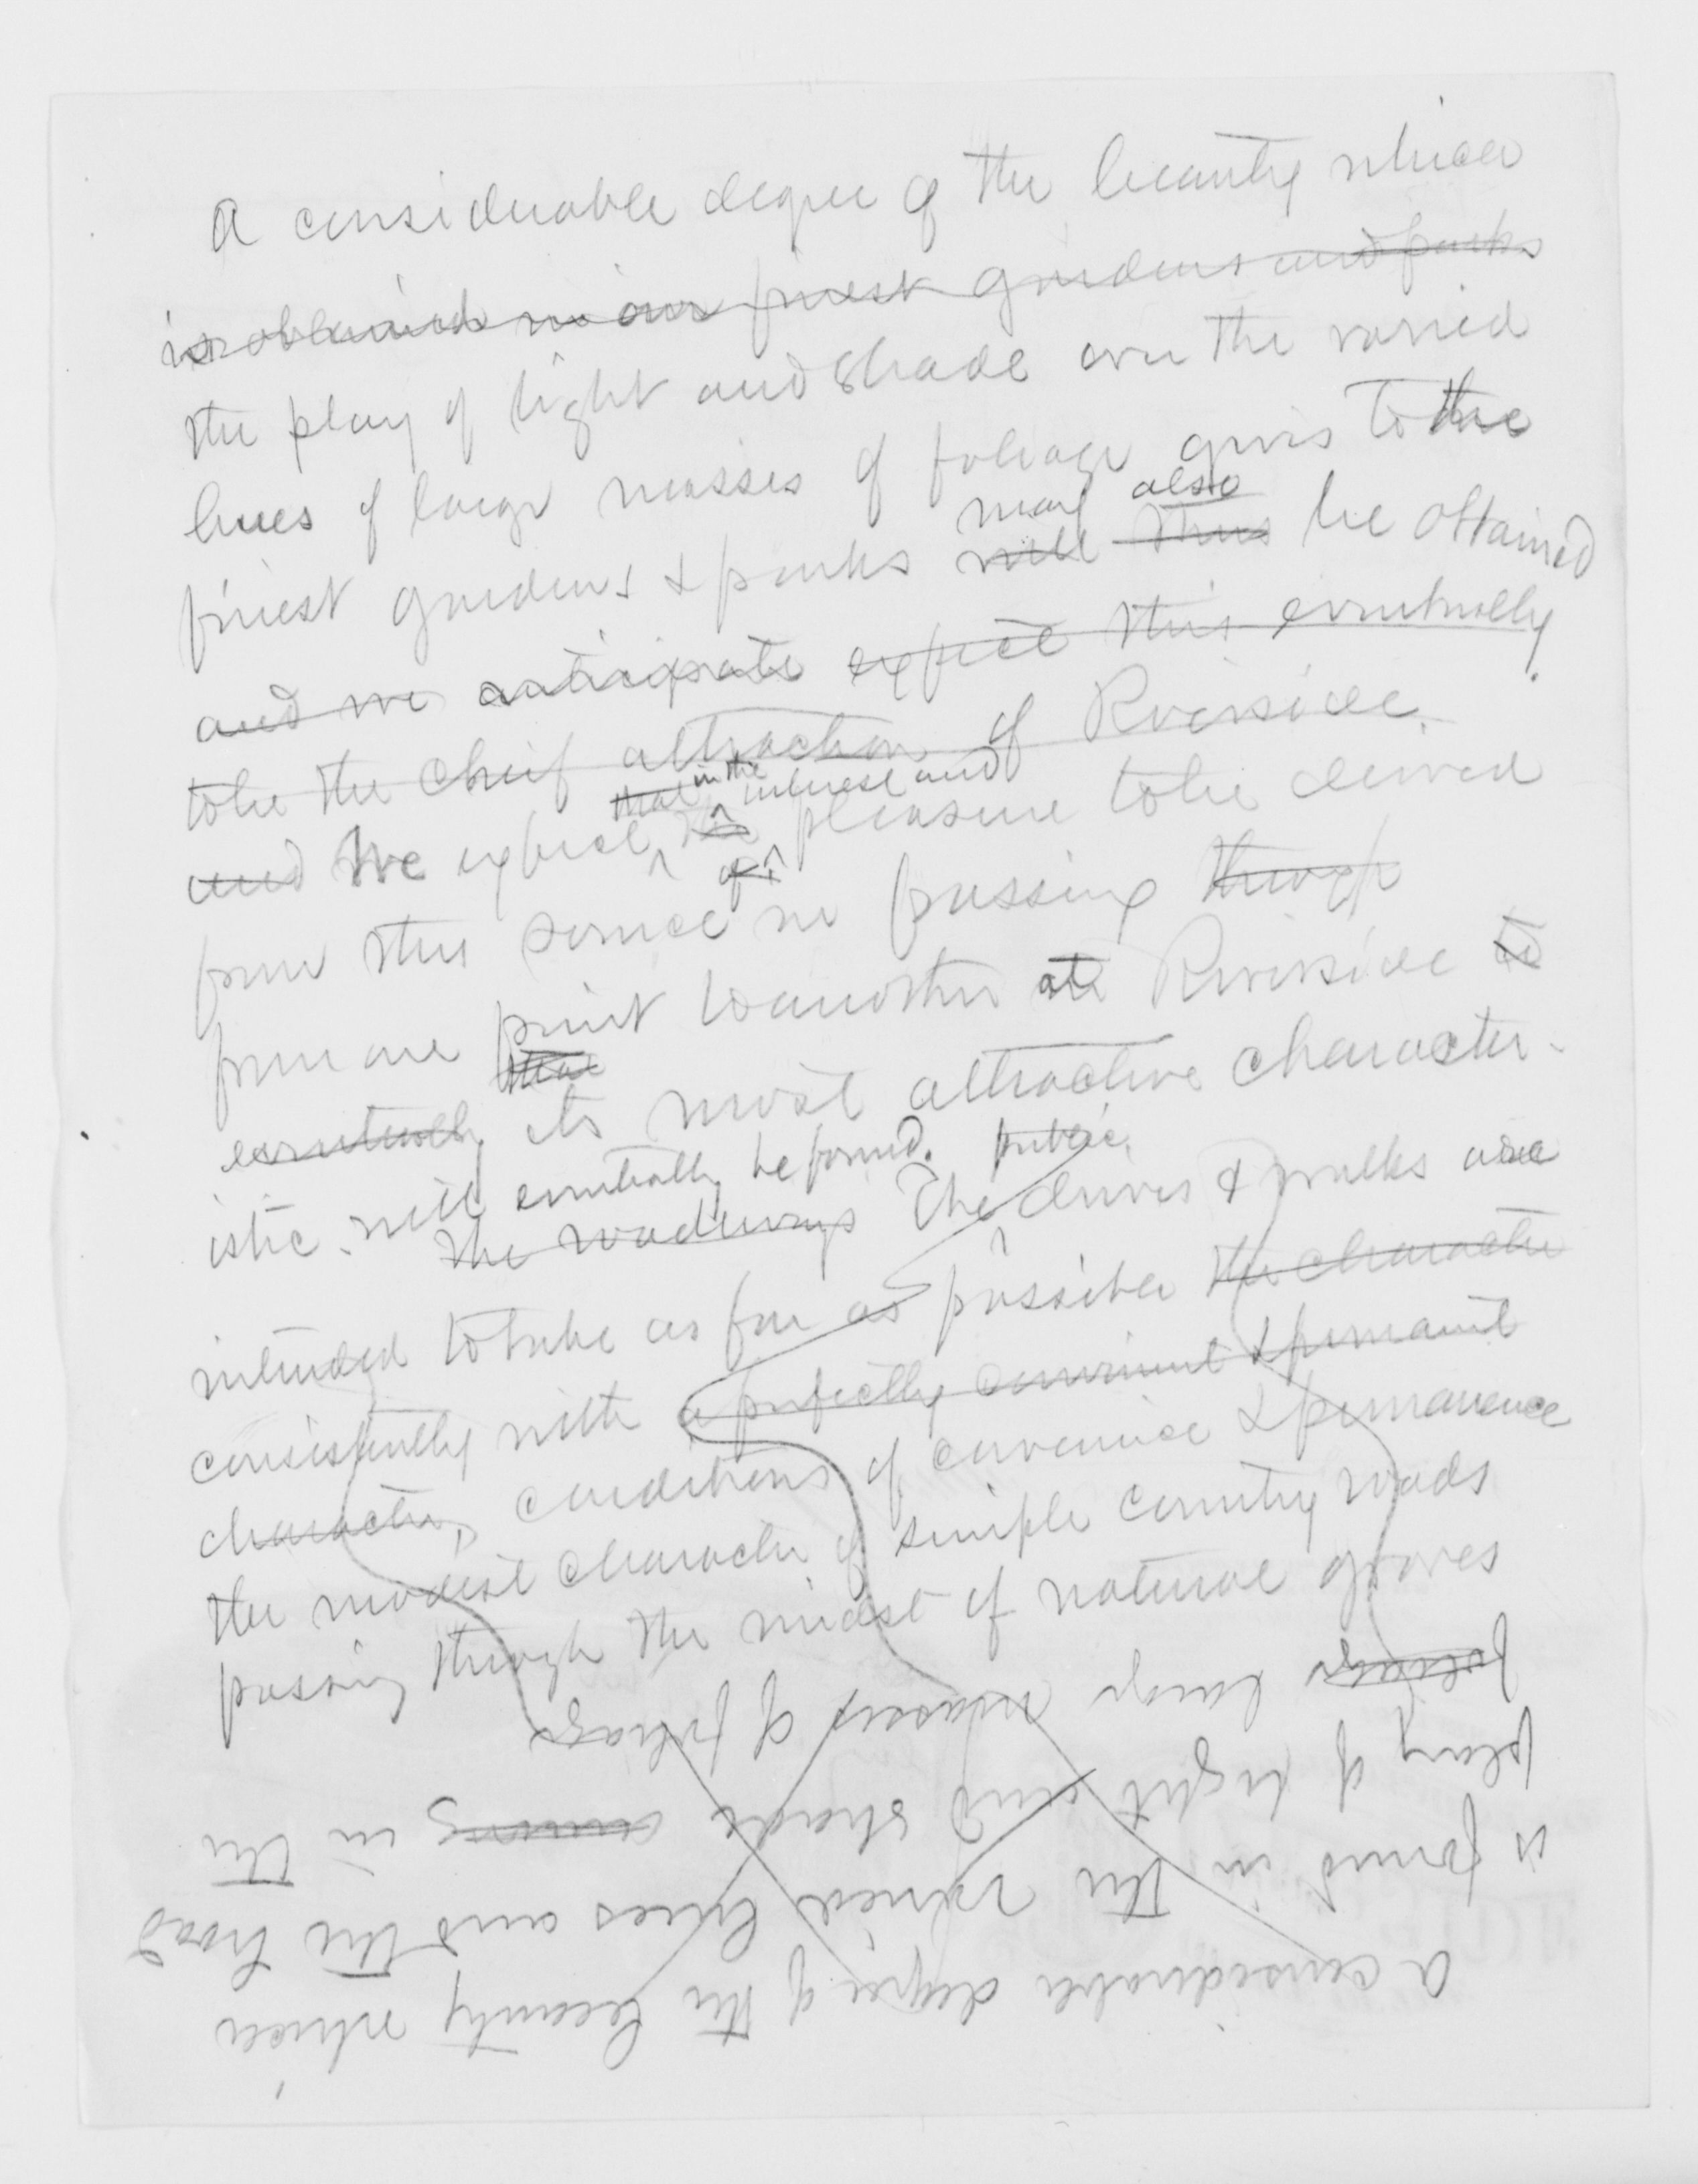 A considerable degree of the beauty which
is obtained in our finest gardens and parks
the play of light and shade over the varied
hues of large masses of foliage gives to the
may also
finest gardens & parks will thus be obtained
and we anticipate expect this eventually
to be the chief attraction of Riverside.
that in the interest and
and We expect the pleasure to be derived
of
from this source in passing through
from one point to another at Riverside to
that
eventually its most attractive character-
istic. will eventually be found. public
The roadways The drives & walks are
intended to take as far as possible the character
consistently with a perfectly convenient & permanent
character, conditions of convenience & permanence
the modest character of simple country roads
passing through the midst of natural groves
A considerable degree of the beauty which
is found in the varied hues and the broad
play of light and shade among in the
foliage large masses of foliage